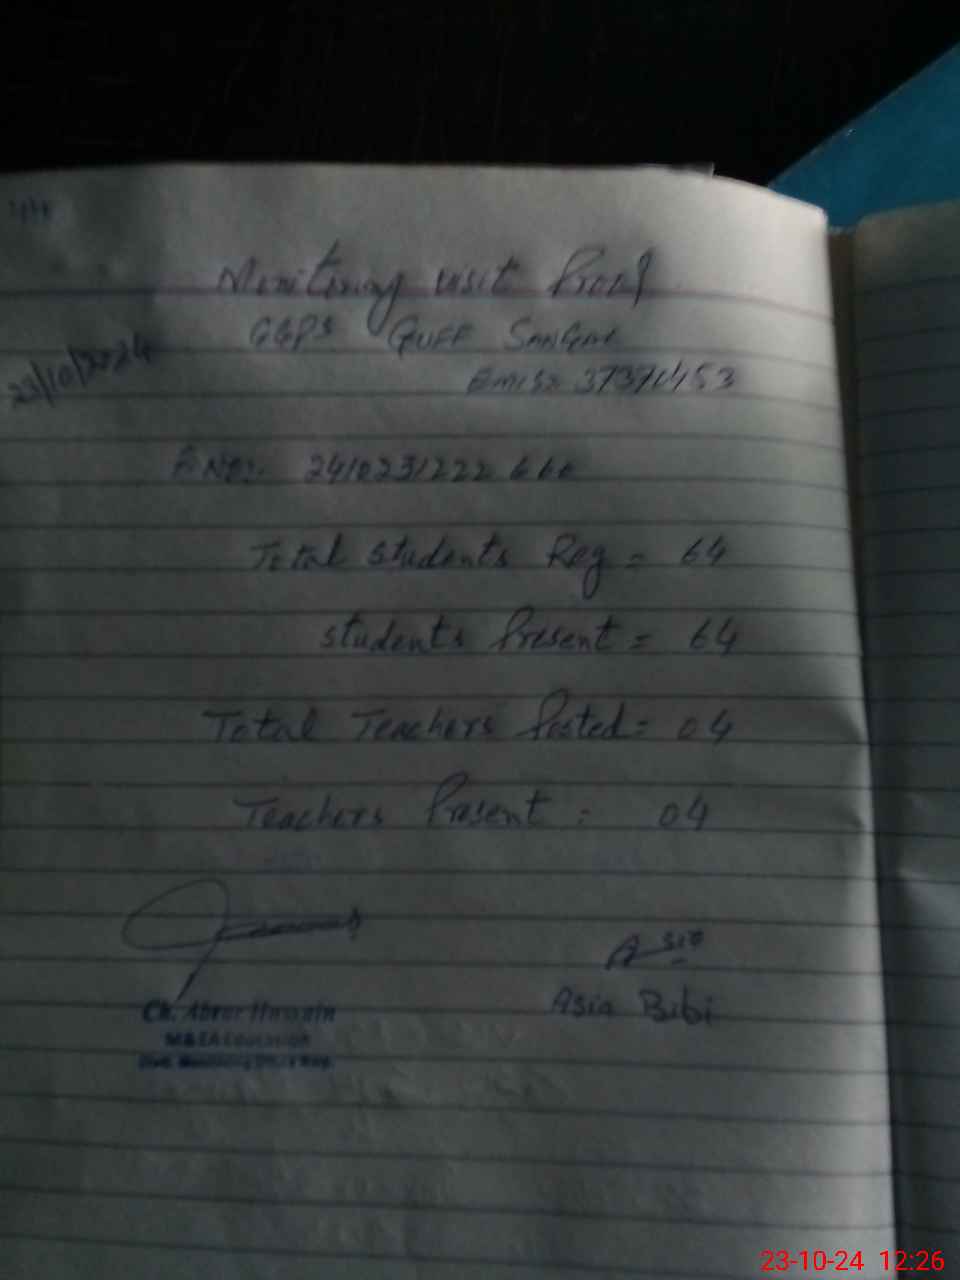 Monitoring visit Proof
GGPS GUFF SanGar
23/10/2024
Emis: 37371453
Total Students Reg = 64
students Present = 64
Total Teachers Posted = 04
Teachers Present : 04
Ch. Abrar Hussain
M&EA Education
Asia
Asia Bibi
23-10-24 12:26